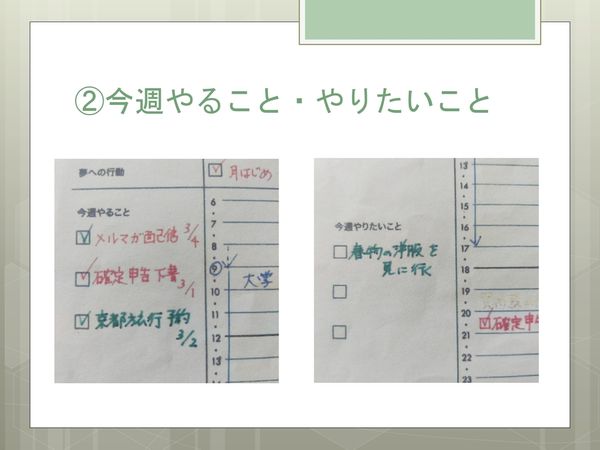 ②今週やること・やりたいこと
夢への行動
☑ 月はじめ
今週やること
☑ メルマガ配信 3/4
☑ 確定申告下書 3/1
☑ 京都旅行予約
3/2
6
7
8
9
10
11
12
13
大学
今週やりたいこと
□ 春物の洋服を
見に行く
□
□
13
14
15
16
17
18
19
20
21
22
23
☑ 確定申